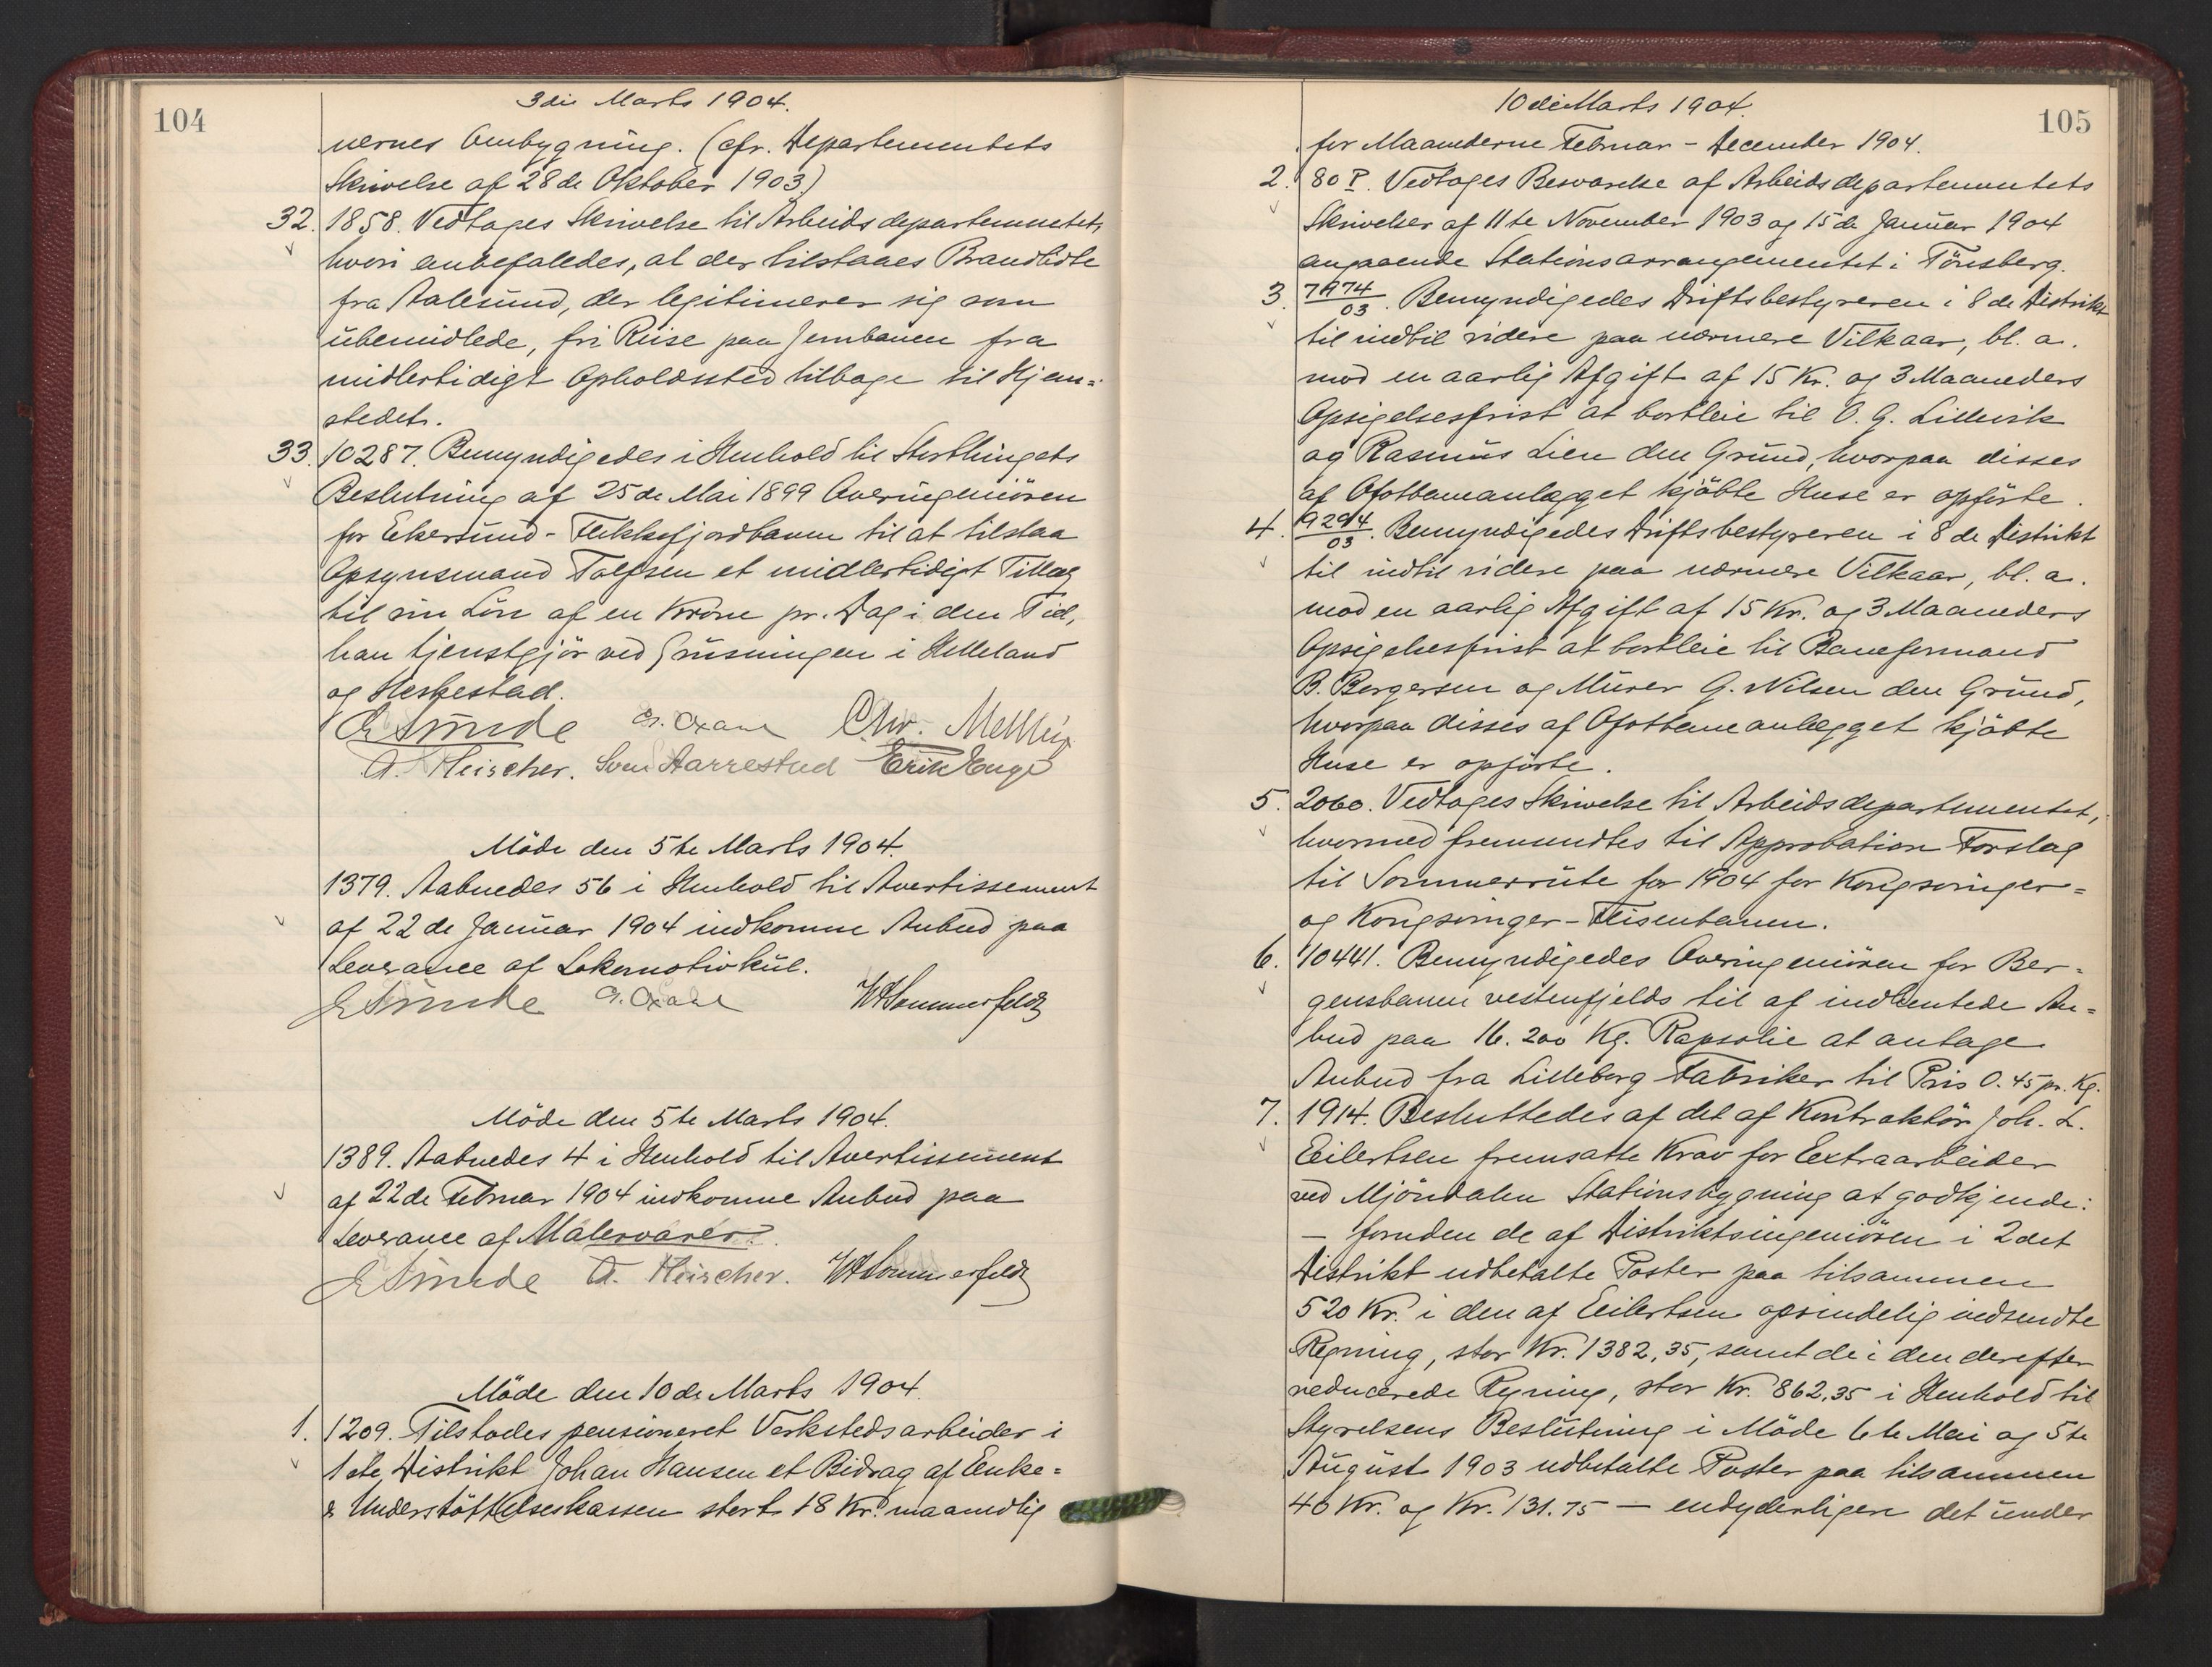 104
3die Marts 1904.
nernes Ombygning. (cfr. Departementets
Skrivelse af 28de Oktober 1903.)
32. 1858. Vedtages Skrivelse til Arbeidsdepartementet,
hvori anbefaledes, at der tilstaaes Brandlidte
fra Aalesund, der legitimerer sig som
ubemidlede, fri Reise paa Jernbanen fra
midlertidigt Opholdssted tilbage til Hjem=
stedet.
33. 10287. Bemyndigedes i Henhold til Storthingets
Beslutning af 25de Mai 1899 Overingeniören
for Ekersund-Flekkefjordbanen til at tilstaa
Opsynsmand Tolfsen et midlertidigt Tillæg
til sin Lön af en Krone pr. Dag i den Tid,
han tjenstgjör ved Grusningen i Helleland
og Heskestad.
E Sunde G. Oxaal Chr. Mellbÿe
A. Fleischer. Sven Aarrestad Erik Enge
Möde den 5te Marts 1904.
1379. Aabnedes 56 i Henhold til Avertissement
af 22de Januar 1904 indkomne Anbud paa
Leverance af Lokomotivkul.
E Sunde G. Oxaal W Sommerfeldt
Möde den 5te Marts 1904.
1389. Aabnedes 4 i Henhold til Avertissement
af 22de Februar 1904 indkomne Anbud paa
Leverance af Malervarer.
E Sunde A. Fleischer. W Sommerfeldt
Möde den 10de Marts 1904.
1. 1209. Tilstodes pensioneret Verkstedsarbeider i
1ste Distrikt Johan Hansen et Bidrag af Enke=
& Understöttelseskassen stort 18 Kr. maanedlig
105
10de Marts 1904.
for Maanederne Februar - December 1904.
2. 80 P. Vedtages Besvarelse af Arbeidsdepartementets
Skrivelser af 11te November 1903 og 15de Januar 1904
angaaende Stationsarrangementet i Tönsberg.
3. 7974/03. Bemyndigedes Driftsbestyreren i 8de Distrikt
til indtil videre paa nærmere Vilkaar, bl. a.
mod en aarlig Afgift af 15 Kr. og 3 Maaneders
Opsigelsesfrist at bortleie til O. G. Lillevik
og Rasmus Lien den Grund, hvorpaa disses
af Ofotbaneanlægget kjöbte Huse er opförte.
4. 9294/03. Bemyndigedes Driftsbestyreren i 8de Distrikt
til indtil videre paa nærmere Vilkaar, bl. a.
mod en aarlig Afgift af 15 Kr. og 3 Maaneders
Opsigelsesfrist at bortleie til Baneformand
B. Bergersen og Murer G. Nilsen den Grund,
hvorpaa disses af Ofotbaneanlægget kjöbte
Huse er opförte.
5. 2060. Vedtages Skrivelse til Arbeidsdepartementet,
hvormed fremsendtes til Approbation Forslag
til Sommerrute for 1904 for Kongsvinger=
og Kongsvinger-Flisenbanen.
6. 10441. Bemyndigedes Overingeniören for Ber=
gensbanen vestenfjelds til af indhentede An=
bud paa 16.200 Kg. Rapsolie at antage
Anbud fra Lilleborg Fabriker til Pris 0.45 pr. Kg.
7. 1914. Besluttedes af det af Kontraktör Joh. L.
Eilertsen fremsatte Krav for Extraarbeider
ved Mjöndalen Stationsbygning at godkjende:
— foruden de af Distriktsingeniören i 2det
Distrikt udbetalte Poster paa tilsammen
520 Kr. i den af Eilertsen oprindelig indsendte
Regning, stor Kr. 1382,35, samt de i den derefter
reducerede Regning, stor Kr. 862,35 i Henhold til
Styrelsens Beslutning i Möde 6te Mai og 5te
August 1903 udbetalte Poster paa tilsammen
40 Kr. og Kr. 131.75 — endyderligere det under